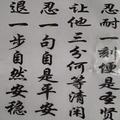 忍耐一刻便是圣贤
让他三分何等清闲
忍一句自是平安
退一步自然安稳